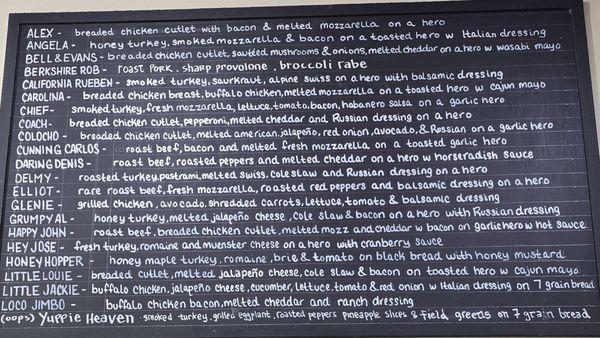 ALEX - breaded chicken cutlet with bacon & melted mozzarella on a hero
ANGELA - honey turkey, smoked mozzarella & bacon on a toasted hero w Italian dressing
BELL & EVANS - breaded chicken cutlet, sautéed mushrooms & onions, melted cheddar on a hero w wasabi mayo
BERKSHIRE ROB - roast pork, sharp provolone, broccoli rabe
CALIFORNIA RUEBEN - smoked turkey, saurkraut, alpine swiss on a hero with balsamic dressing
CAROLINA - breaded chicken breast, buffalo chicken, melted mozzarella on a toasted hero w cajun mayo
CHIEF - smoked turkey, fresh mozzarella, lettuce, tomato, bacon, habanero salsa on a garlic hero
COACH - breaded chicken cutlet, pepperoni, melted cheddar and Russian dressing on a hero
COLOCHO - breaded chicken cutlet, melted american, jalapeño, red onion, avocado, & Russian on a garlic hero
CUNNING CARLOS - roast beef, bacon and melted fresh mozzarella on a toasted garlic hero
DARING DENIS - roast beef, roasted peppers and melted cheddar on a hero w horseradish sauce
DELMY - roasted turkey, pastrami, melted swiss, cole slaw and Russian dressing on a hero
ELLIOT - rare roast beef, fresh mozzarella, roasted red peppers and balsamic dressing on a hero
GLENIE - grilled chicken, avocado, shredded carrots, lettuce, tomato & balsamic dressing
GRUMPY AL - honey turkey, melted jalapeño cheese, cole slaw & bacon on a hero with Russian dressing
HAPPY JOHN - roast beef, breaded chicken cutlet, melted mozz and cheddar w bacon on garlic hero w hot sauce
HEY JOSE - fresh turkey, romaine and muenster cheese on a hero with cranberry sauce
HONEY HOPPER - honey maple turkey, romaine, brie & tomato on black bread with honey mustard
LITTLE LOUIE - breaded cutlet, melted jalapeño cheese, cole slaw & bacon on toasted hero w cajun mayo
LITTLE JACKIE - buffalo chicken, jalapeño cheese, cucumber, lettuce, tomato & red onion w Italian dressing on 7 grain bread
LOCO JIMBO - buffalo chicken bacon, melted cheddar and ranch dressing
(oops) Yuppie Heaven - smoked turkey, grilled eggplant, roasted peppers pineapple slices & field greens on 7 grain bread